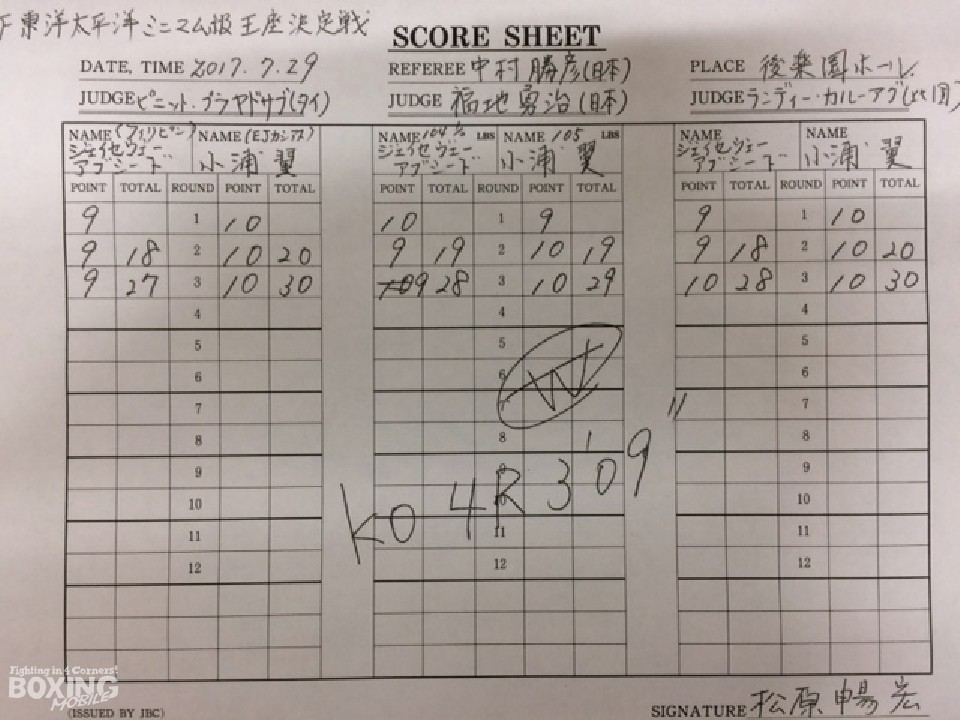 東洋太平洋ミニマム級王座決定戦
SCORE SHEET
DATE, TIME 2017.7.29 REFEREE 中村勝彦(日本) PLACE 後楽園ホール
JUDGE ピニット・プラヤドサブ(タイ) JUDGE 福地勇治(日本) JUDGE ランディー・カルーアグ
NAME (フィリピン) NAME (EJカシアス) NAME 104 ½ LBS NAME 105 LBS NAME NAME
ジェイセヴェー 小浦 翼 ジェイセヴェー 小浦 翼 ジェイセヴェー 小浦 翼
アブシード アブシード アブシード
POINT TOTAL ROUND POINT TOTAL POINT TOTAL ROUND POINT TOTAL POINT TOTAL ROUND POINT TOTAL
9 1 10 10 1 9 9 1 10
9 18 2 10 20 9 19 2 10 19 9 18 2 10 20
9 27 3 10 30 9 28 3 10 29 10 28 3 10 30
4 4 4
5 5 5
6 6 6
7 7 7
8 8 8
9 9 9
10 10 10
11 11 11
12 12 12
W
KO 4R 3'09"
Fighting in 4 Corners!
BOXING
MOBILE
(ISSUED BY JBC) SIGNATURE 松原暢宏